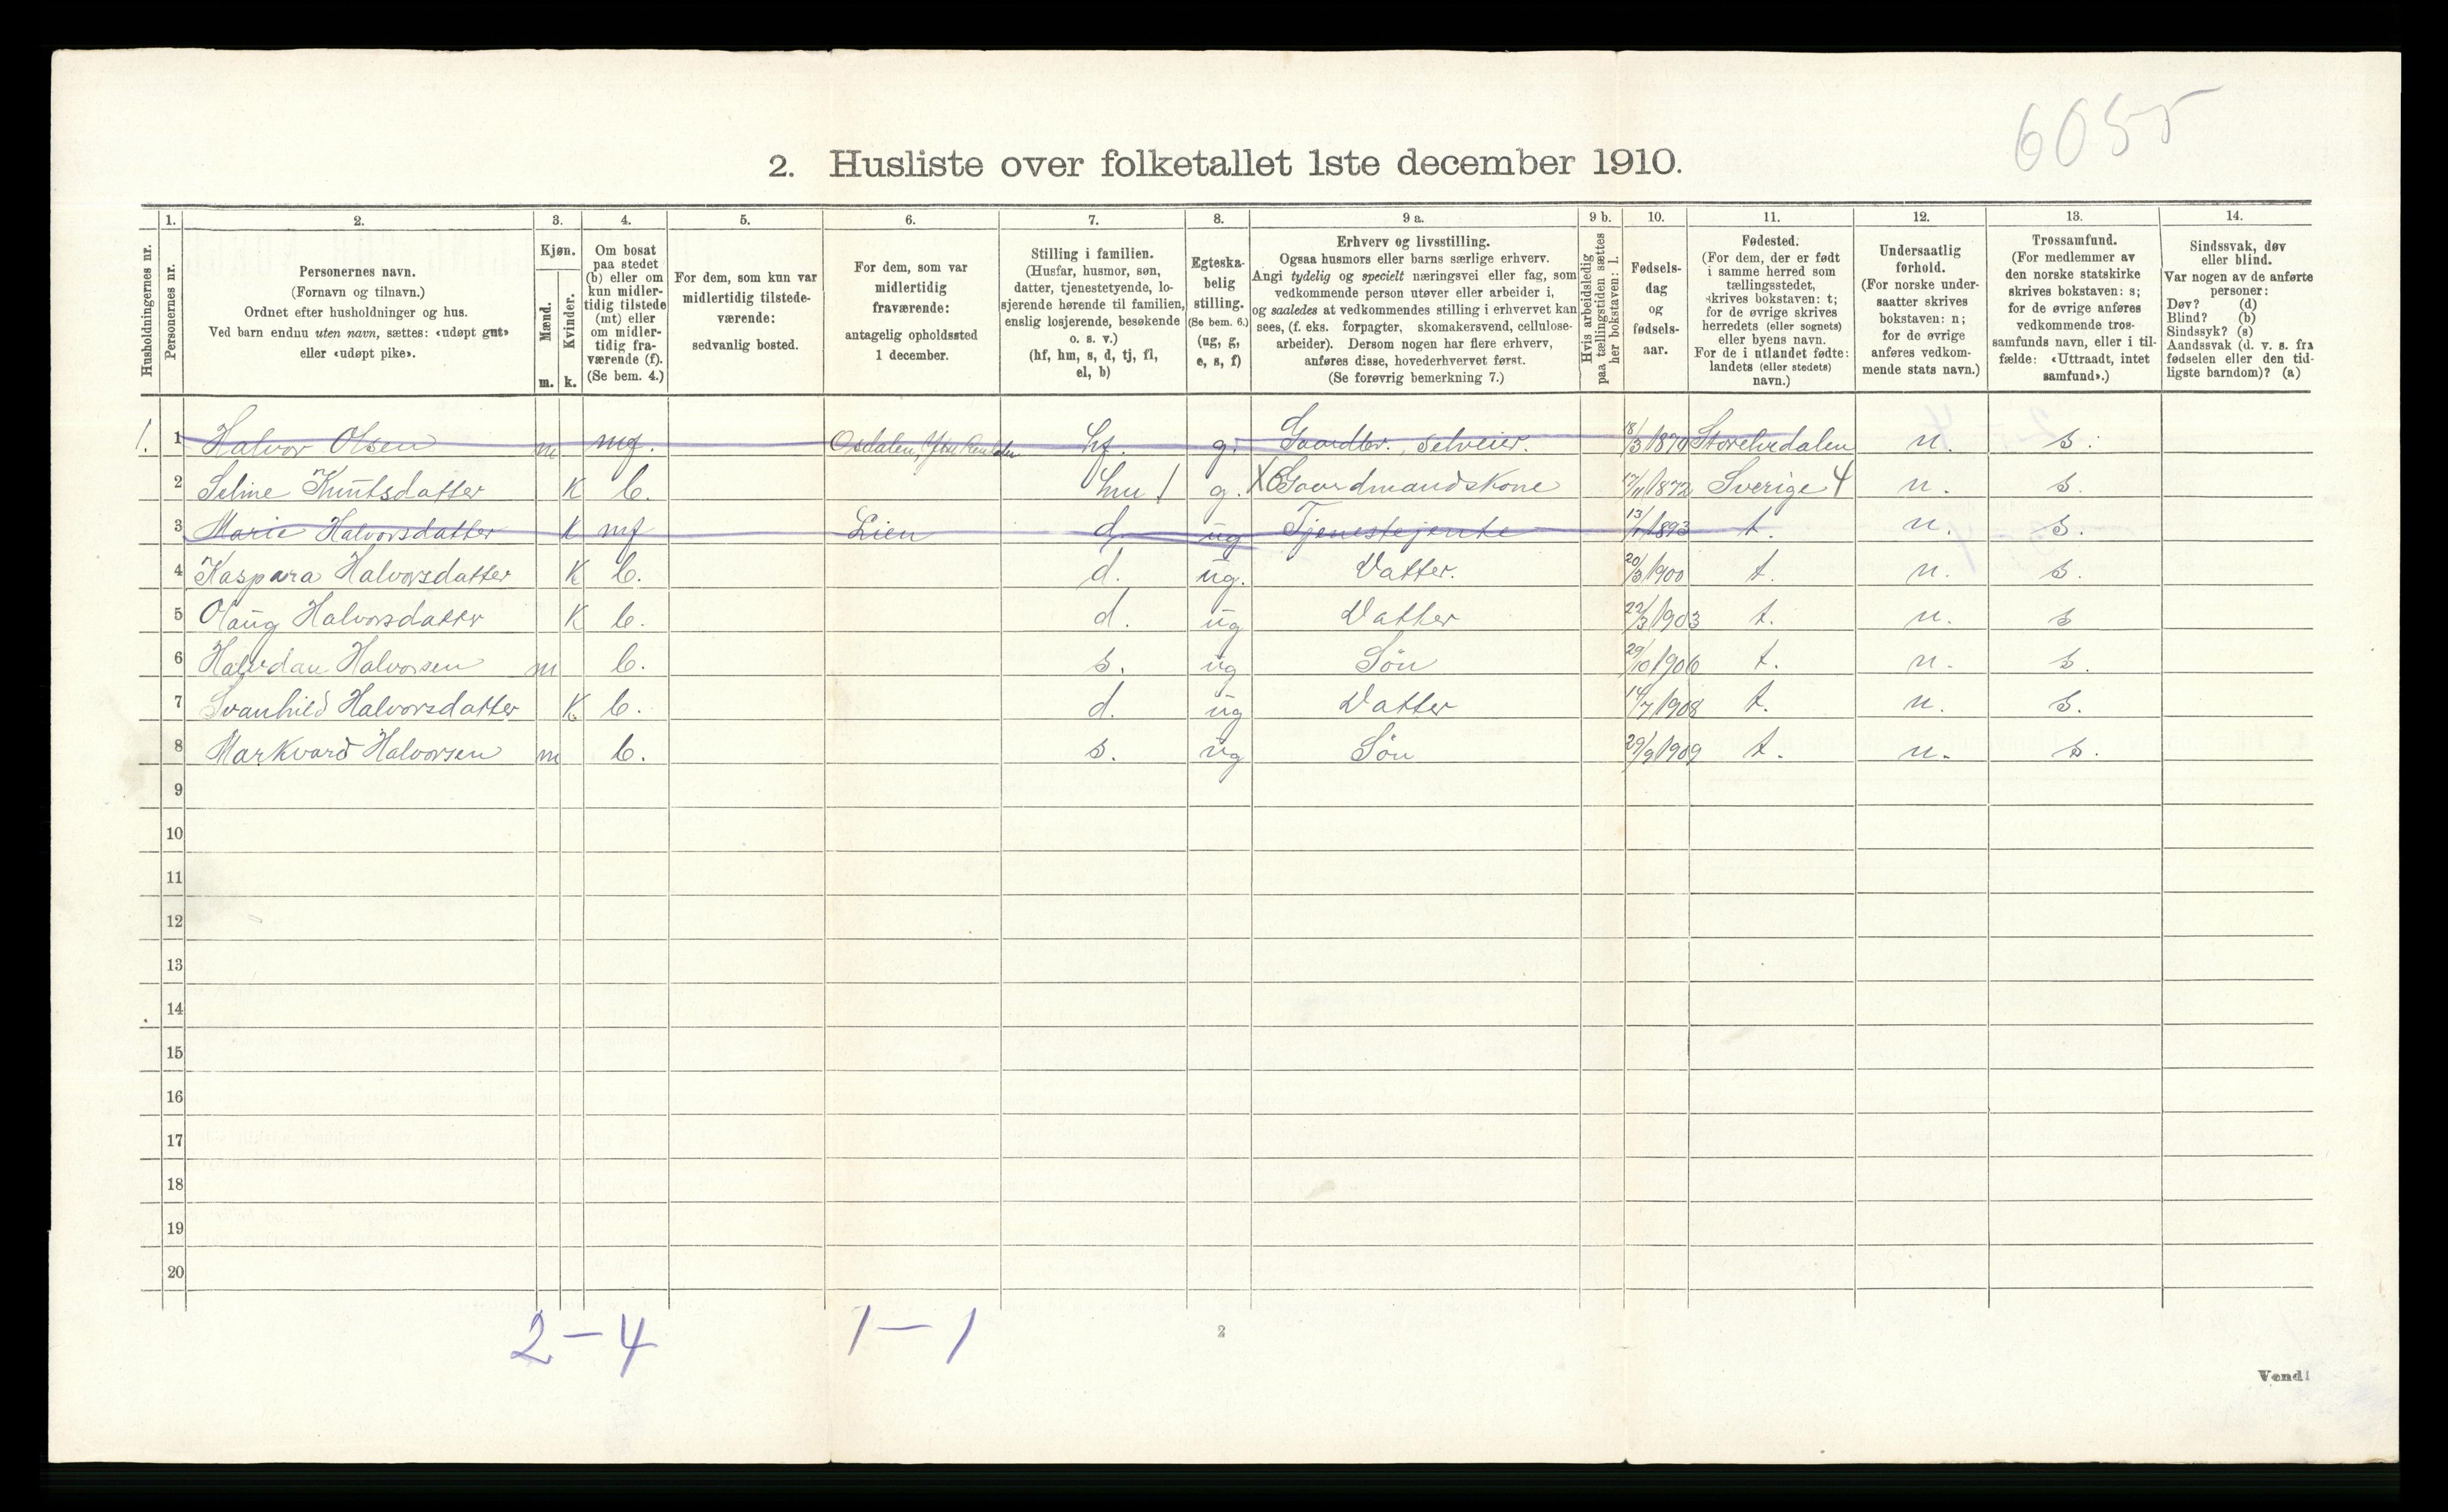 6055
2. Husliste over folketallet 1ste december 1910.
Husholdningernes nr.
1.
Personernes nr.
2.
Personernes navn.
(Fornavn og tilnavn.)
Ordnet efter husholdninger og hus.
Ved barn endnu uten navn, sættes: «udøpt gut»
eller «udøpt pike».
3.
Kjøn.
Mænd.
Kvinder.
m. k.
4.
Om bosat
paa stedet
(b) eller om
kun midler-
tidig tilstede
(mt) eller
om midler-
tidig fra-
værende (f).
(Se bem. 4.)
5.
For dem, som kun var
midlertidig tilstede-
værende:
sedvanlig bosted.
6.
For dem, som var
midlertidig
fraværende:
antagelig opholdssted
1 december.
7.
Stilling i familien.
(Husfar, husmor, søn,
datter, tjenestetyende, lo-
sjerende hørende til familien,
enslig losjerende, besøkende
o. s. v.)
(hf, hm, s, d, tj, fl,
el, b)
8.
Egteska-
belig
stilling.
(Se bem. 6.)
(ug, g,
e, s, f)
9 a.
Erhverv og livsstilling.
Ogsaa husmors eller barns særlige erhverv.
Angi tydelig og specielt næringsvei eller fag, som
vedkommende person utøver eller arbeider i,
og saaledes at vedkommendes stilling i erhvervet kan
sees, (f. eks. forpagter, skomakersvend, cellulose-
arbeider). Dersom nogen har flere erhverv,
anføres disse, hovederhvervet først.
(Se forøvrig bemerkning 7.)
9 b.
Hvis arbeidsledig
paa tællingstiden sættes
her bokstaven: l.
10.
Fødsels-
dag
og
fødsels-
aar.
11.
Fødested.
(For dem, der er født
i samme herred som
tællingsstedet,
skrives bokstaven: t;
for de øvrige skrives
herredets (eller sognets)
eller byens navn.
For de i utlandet fødte:
landets (eller stedets)
navn.)
12.
Undersaatlig
forhold.
(For norske under-
saatter skrives
bokstaven: n;
for de øvrige
anføres vedkom-
mende stats navn.)
13.
Trossamfund.
(For medlemmer av
den norske statskirke
skrives bokstaven: s;
for de øvrige anføres
vedkommende tros-
samfunds navn, eller i til-
fælde: «Uttraadt, intet
samfund».)
14.
Sindssvak, døv
eller blind.
Var nogen av de anførte
personer:
Døv? (d)
Blind? (b)
Sindssyk? (s)
Aandssvak (d. v. s. fra
fødselen eller den tid-
ligste barndom)? (a)
1. 1 Halvor Olsen m mf. Osdalen, hf. g. Gaardbr. selveier. 18/3 1874 Storelvdalen n. s.
2 Seline Knutsdatter K b. hm g. X Gaardmandskone 17/11 1872 Sverige 4 n. s.
3 Marie Halvorsdatter K mf Lien d. ug Tjenestejente 1893 t. n. s.
4 Kaspara Halvorsdatter K b. d. ug. Datter. 20/3 1900 t. n. s.
5 Olaug Halvorsdatter K b. d. ug Datter 22/3 1903 t. n. s
6 Halvdan Halvorsen m b. s. ug Søn 29/10 1906 t. n. s.
7 Svanhild Halvorsdatter K b. d. ug Datter 14/7 1908 t. n. s.
8 Markvard Halvorsen m b. s. ug Søn 29/9 1909 t. n. s.
9
10
11
12
13
14
15
16
17
18
19
20
2 – 4 1 – 1
2
Vend!